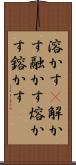 溶かす《解か
す融かす熔か
す鎔かす